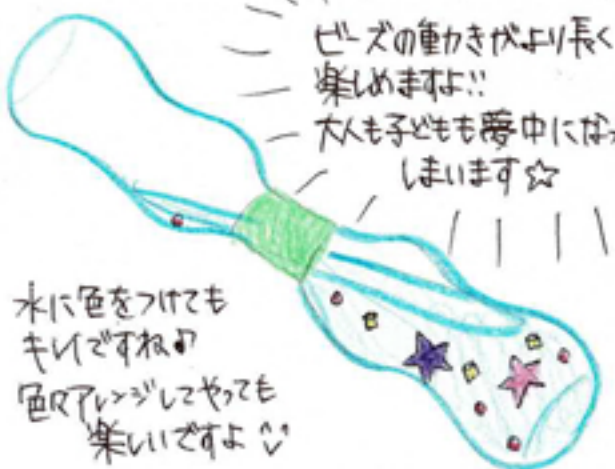 ビーズの動きがより長く
楽しめますよ!!
大人も子どもも夢中になっ
しまいます☆
水に色をつけても
キレイですね♪
色々アレンジしてやっても
楽しいですよ